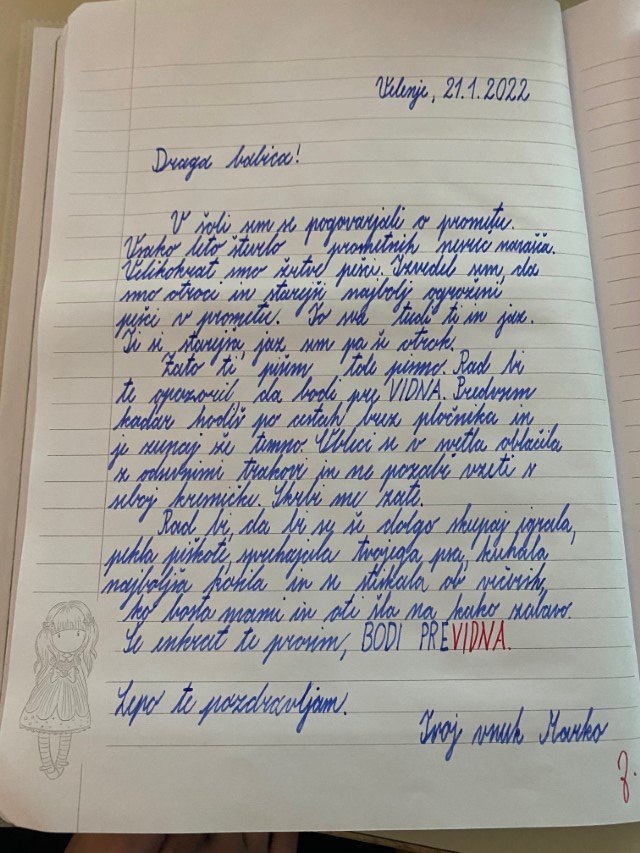 Velenje, 21.1.2022
Draga babica!
V šoli smo se pogovarjali o prometu.
Vsako leto število prometnih nesreč narašča.
Velikokrat smo žrtve pešci. Izvedel sem, da
smo otroci in starejši najbolj ogroženi
pešci v prometu. To sva tudi ti in jaz.
Ti si starejša, jaz sem pa še otrok.
Zato ti pišem tole pismo. Rad bi
te opozoril, da bodi pre VIDNA. Predvsem
kadar hodiš po cestah brez pločnika in
je zunaj že temno. Obleci se v svetla oblačila
z odsevnimi trakovi in ne pozabi vzeti s
seboj kresničke. Skrbi me zate.
Rad bi, da bi se še dolgo skupaj igrala,
pekla piškote, sprehajala tvojega psa, kuhala
najboljša kosila in se stiskala ob večerih,
ko bosta mami in oti šla na kako zabavo.
Še enkrat te prosim, BODI PREVIDNA.
Lepo te pozdravljam.
Tvoj vnuk Marko